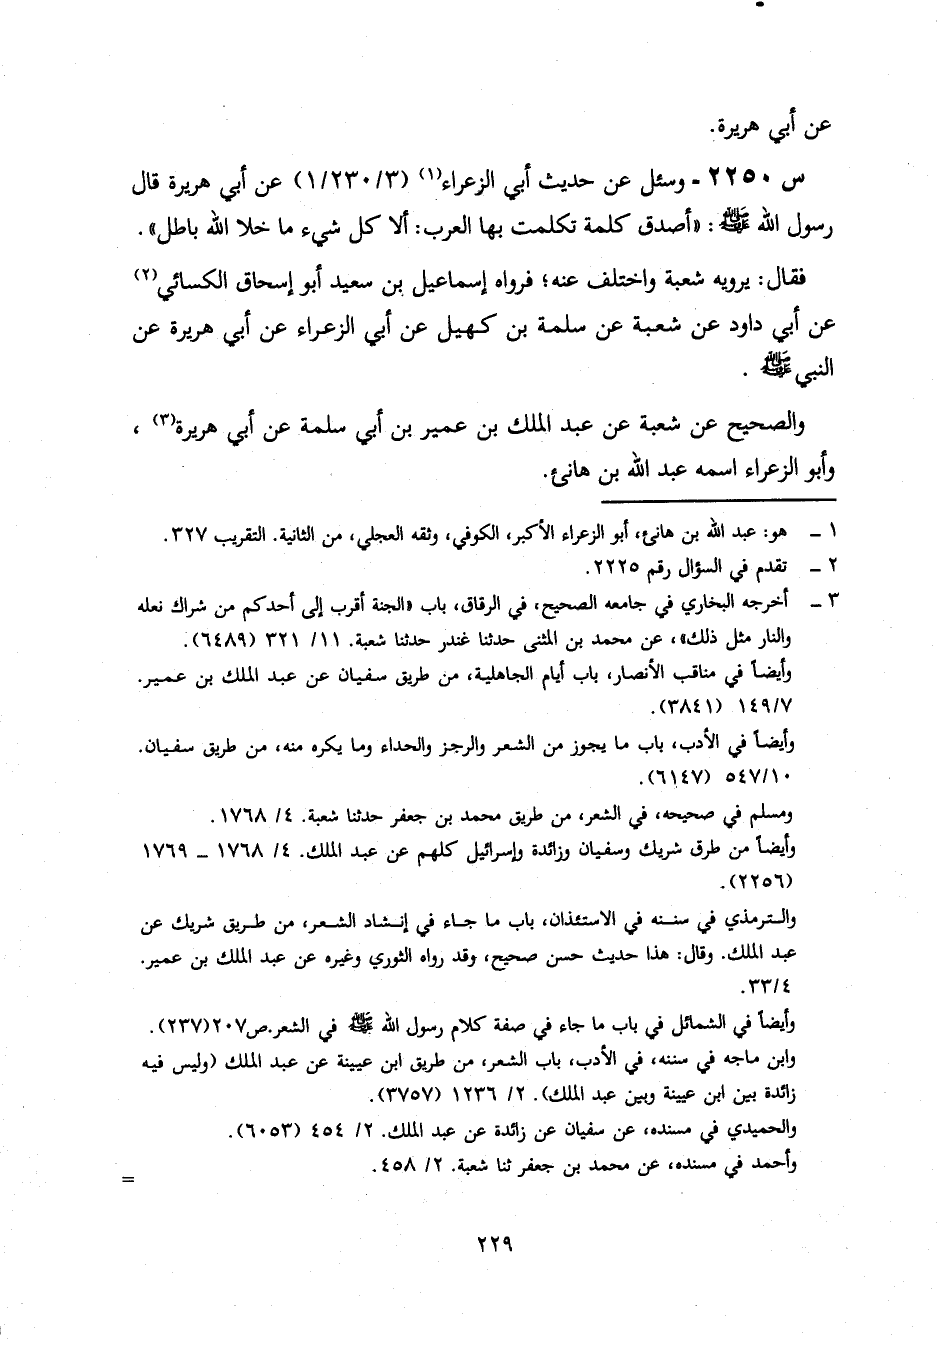 عن أبي هريرة.
س ٢٢٥٠ - وسئل عن حديث أبي الزعراء(١) (١/٢٣٠/٣) عن أبي هريرة قال
رسول الله ﷺ: «أصدق كلمة تكلمت بها العرب: ألا كل شيء ما خلا الله باطل».
فقال: يرويه شعبة واختلف عنه؛ فرواه إسماعيل بن سعيد أبو إسحاق الكسائي(٢)
عن أبي داود عن شعبة عن سلمة بن كهيل عن أبي الزعراء عن أبي هريرة عن
النبي ﷺ .
والصحيح عن شعبة عن عبد الملك بن عمير بن أبي سلمة عن أبي هريرة(٣) ،
وأبو الزعراء اسمه عبد الله بن هانئ.
١ ـ هو: عبد الله بن هانئ، أبو الزعراء الأكبر، الكوفي، وثقه العجلي، من الثانية. التقريب ٣٢٧.
٢ ـ تقدم في السؤال رقم ٢٢٢٥.
٣ ـ أخرجه البخاري في جامعه الصحيح، في الرقاق، باب «الجنة أقرب إلى أحدكم من شراك نعله
والنار مثل ذلك»، عن محمد بن المثنى حدثنا غندر حدثنا شعبة. ١١/ ٣٢١ (٦٤٨٩).
وأيضاً في مناقب الأنصار، باب أيام الجاهلية، من طريق سفيان عن عبد الملك بن عمير.
١٤٩/٧ (٣٨٤١).
وأيضاً في الأدب، باب ما يجوز من الشعر والرجز والحداء وما يكره منه، من طريق سفيان.
٥٤٧/١٠ (٦١٤٧).
ومسلم في صحيحه، في الشعر، من طريق محمد بن جعفر حدثنا شعبة. ٤/ ١٧٦٨.
وأيضاً من طرق شريك وسفيان وزائدة وإسرائيل كلهم عن عبد الملك. ٤/ ١٧٦٨ ـ ١٧٦٩
(٢٢٥٦).
والترمذي في سننه في الاستئذان، باب ما جاء في إنشاد الشعر، من طريق شريك عن
عبد الملك. وقال: هذا حديث حسن صحيح، وقد رواه الثوري وغيره عن عبد الملك بن عمير.
٣٣/٤.
وأيضاً في الشمائل في باب ما جاء في صفة كلام رسول الله ﷺ في الشعر.ص٢٠٧(٢٣٧).
وابن ماجه في سننه، في الأدب، باب الشعر، من طريق ابن عيينة عن عبد الملك (وليس فيه
زائدة بين ابن عيينة وبين عبد الملك). ٢/ ١٢٣٦ (٣٧٥٧).
والحميدي في مسنده، عن سفيان عن زائدة عن عبد الملك. ٢/ ٤٥٤ (٦٠٥٣).
وأحمد في مسنده، عن محمد بن جعفر ثنا شعبة. ٢/ ٤٥٨.
=
٢٢٩